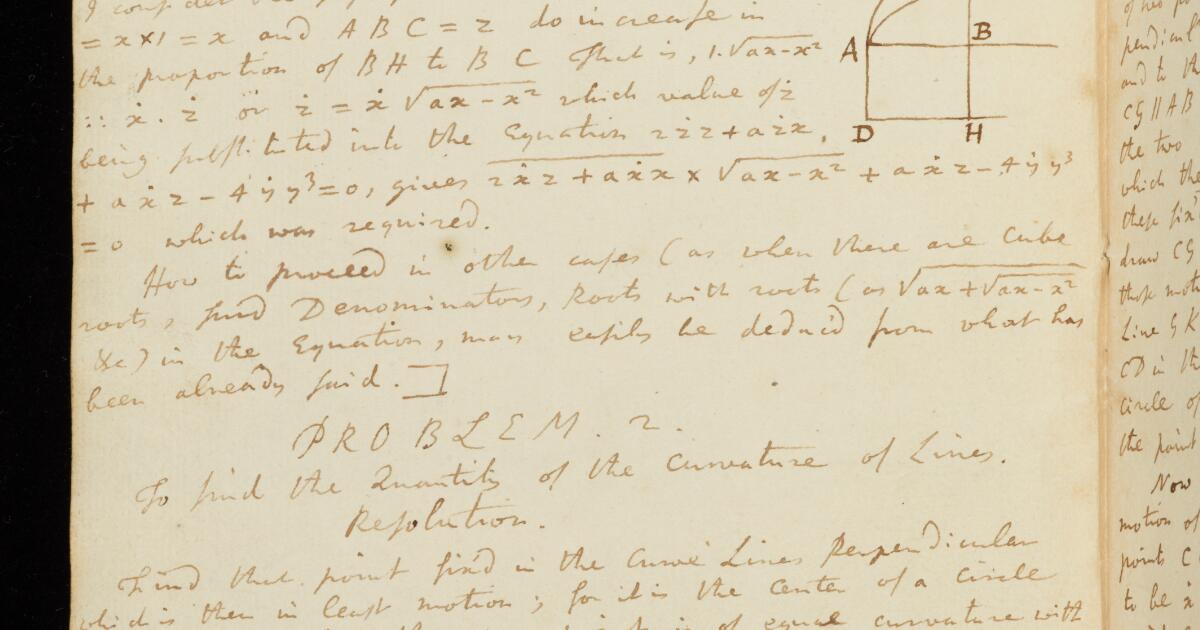 = x×1 = x and ABC = z do increase in
the proportion of BH to BC That is, 1.√ax-x²
:: ẋ. ż or ż = ẋ √ax-x² which value of ż
being substituted into the Equation 2żz + ażx,
+ aẋz - 4ẏy³=0, gives 2ẋz + aẋx × √ax-x² + aẋz - 4ẏy³
= 0 which was required.
How to proceed in other cases (as when there are cube
roots, surd Denominators, Roots with roots (as √ax+√ax-x²
&c) in the Equation, may easily be deduc'd from what has
been already said.]
PROBLEM. 2.
To find the Quantity of the curvature of Lines.
Resolution.
Find that point fix'd in the Curve Lines Perpendicular
which is then in least motion; for it is the Center of a Circle
is of equal curvature with
A
B
D
H
pendicul
and to th
CG || AB
the two
which the
these fix'
draw CG
those moti
Line GK
CD in th
circle of
the point
Now
motion of
points C
to be ẋ